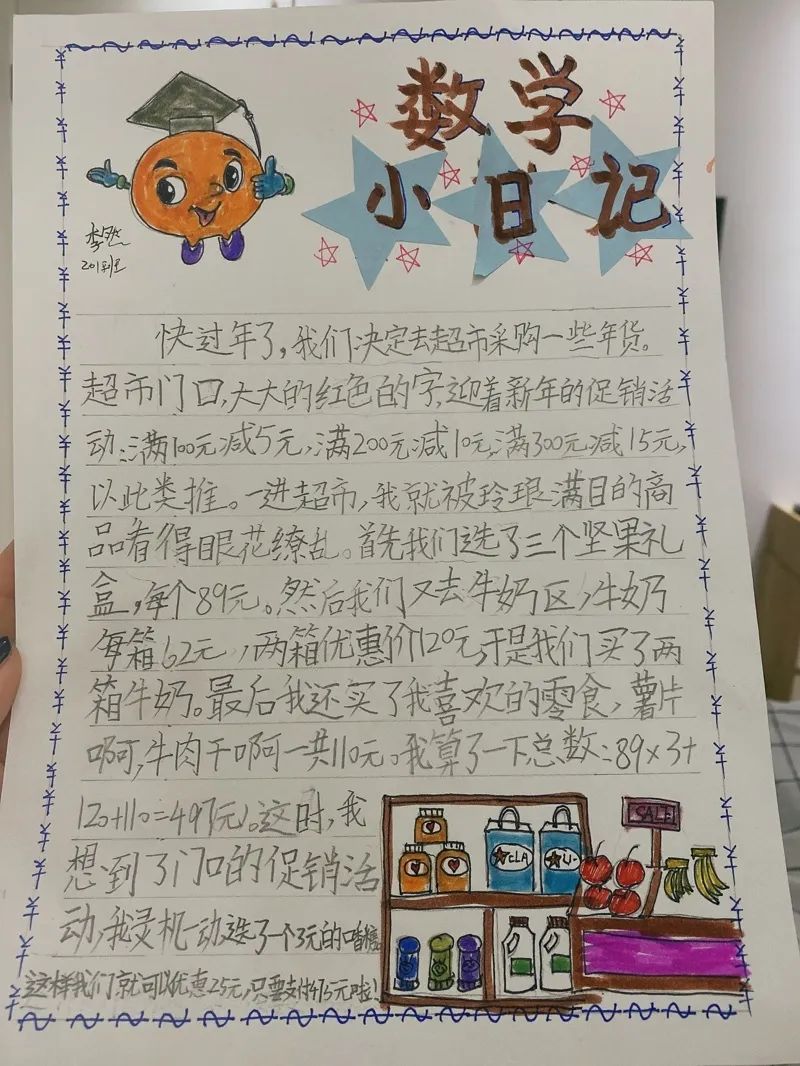 数学
小日记
李然
201班
快过年了,我们决定去超市采购一些年货。
超市门口,大大的红色的字,迎着新年的促销活
动:满100元减5元,满200元减10元,满300元减15元,
以此类推。一进超市,我就被玲琅满目的商
品看得眼花缭乱。首先我们选了三个坚果礼
盒,每个89元。然后我们又去牛奶区,牛奶
每箱62元,两箱优惠价120元,于是我们买了两
箱牛奶。最后我还买了我喜欢的零食,薯片
啊,牛肉干啊一共110元。我算了一下总数:89×3+
120+110=497(元)。这时,我
想到了门口的促销活
动,我灵机一动选了一个3元的口香糖
这样我们就可以优惠25元,只要支付475元啦!
SALE